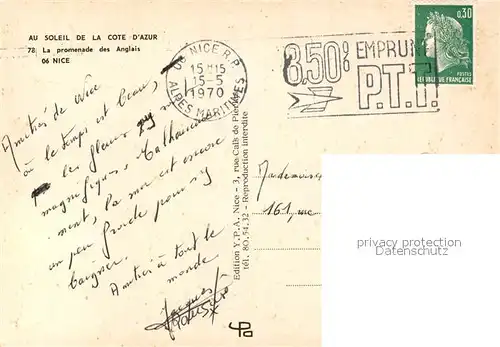 AU SOLEIL DE LA COTE D'AZUR
78 La promenade des Anglais
06 NICE
06 NICE R.P.
15H15
15-5
1970
ALPES MARITIMES
8.50% EMPRUNT
P.T.T.
0,30
POSTES
REPUBLIQUE FRANÇAISE
Amitiés de Nice
où le temps est beau,
les fleurs
magnifiques. Malheureuse
ment, la mer est encore
un peu froide pour s'y
baigner.
Amitiés à tout le
monde
Jacques
Edition Y.P.A. Nice - 3, rue Caïs de Pierlas
tél. 80.54.32 - Reproduction interdite
Mademoiselle
161, rue
privacy protection
Datenschutz